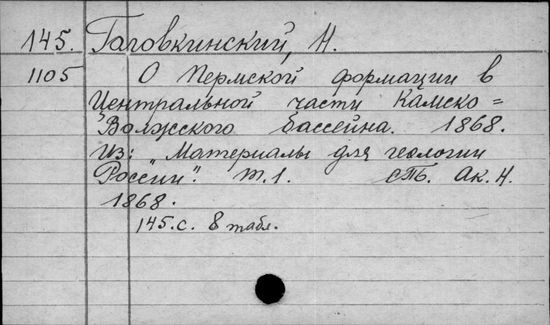 145. Головкинский, Н.
1105 О Пермской формации в
Центральной части Камско=
Волжского бассейна. 1868.
Из: "Материалы для геологии
России". т.1. СПб. Ак.Н.
1868.
145.с. 8 табл.